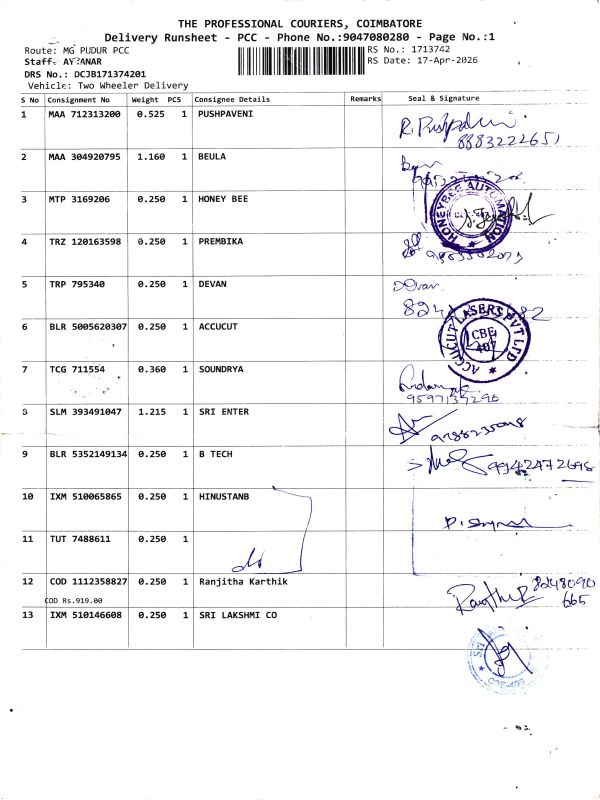 THE PROFESSIONAL COURIERS, COIMBATORE
Delivery Runsheet - PCC - Phone No.:9047080280 - Page No.:1
Route: MG PUDUR PCC RS No.: 1713742
Staff: AYYANAR RS Date: 17-Apr-2026
DRS No.: DCJB171374201
Vehicle: Two Wheeler Delivery
S No Consignment No Weight PCS Consignee Details Remarks Seal & Signature
1 MAA 712313200 0.525 1 PUSHPAVENI
8883222651
2 MAA 304920795 1.160 1 BEULA
3 MTP 3169206 0.250 1 HONEY BEE
HONEYBEE AUTOMATION
4 TRZ 120163598 0.250 1 PREMBIKA
5 TRP 795340 0.250 1 DEVAN
Devan
6 BLR 5005620307 0.250 1 ACCUCUT
ACCUCUT LASERS PVT LTD
CBE
407
7 TCG 711554 0.360 1 SOUNDRYA
8 SLM 393491047 1.215 1 SRI ENTER
9 BLR 5352149134 0.250 1 B TECH
9942472698
10 IXM 510065865 0.250 1 HINUSTANB
11 TUT 7488611 0.250 1
do
12 COD 1112358827 0.250 1 Ranjitha Karthik
COD Rs.919.00
8248090
665
13 IXM 510146608 0.250 1 SRI LAKSHMI CO